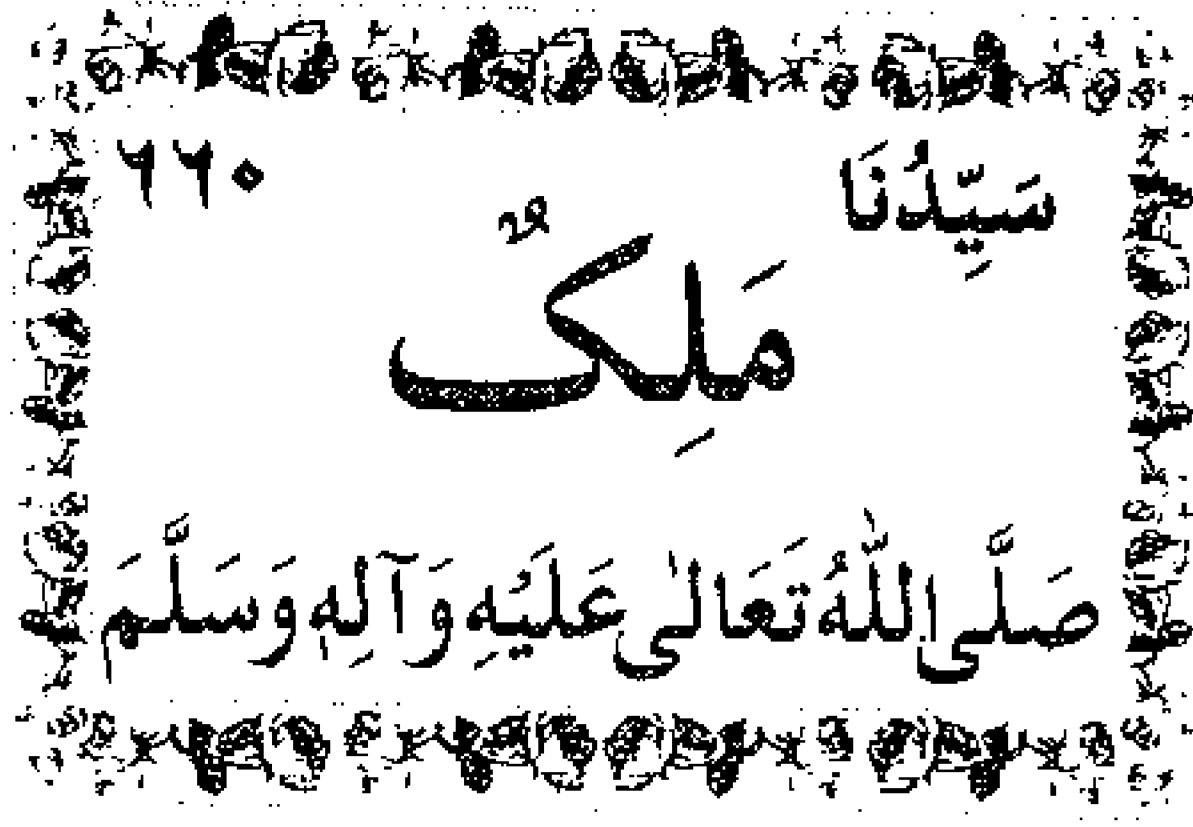 سَيِّدُنَا ٦٦٠
مَلِكٌ
صَلَّى اللّٰهُ تَعَالٰى عَلَيْهِ وَآلِهٖ وَسَلَّمَ